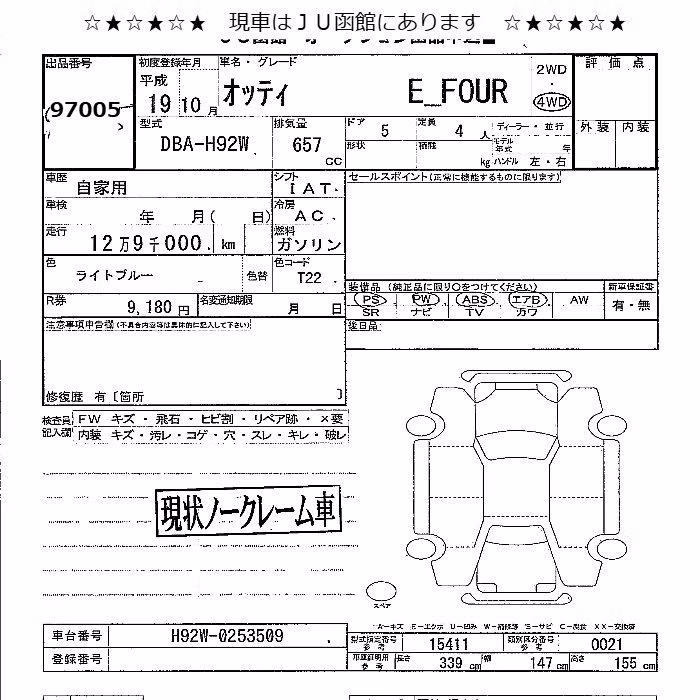 ☆★☆★☆★ 現車はＪＵ函館にあります ☆★☆★☆★
出品番号
97005
初度登録年月
平成
19 10 月
車名・グレード
オッティ E_FOUR
2WD
4WD
評価点
外装 内装
型式
DBA-H92W
排気量
657
cc
ドア 5
定員 4 人
ディーラー・並行
形状
積載 kg
モデル年式 年
ハンドル 左・右
車歴
自家用
シフト
IAT
セールスポイント(正常に機能するものに限ります)
車検
年 月( 日)
冷房
AC
走行
12万9千000 km
燃料
ガソリン
色
ライトブルー
色替
色コード
T22
装備品 (純正品に限り○をつけてください)
新車保証書
PS PW ABS エアB AW
SR ナビ TV カワ
有・無
R券
9,180 円
名変通知期限
月 日
後日品
注意事項申告欄(不具合内容等は具体的に記入して下さい)
修復歴 有〔箇所 〕
検査員記入欄
FW キズ・飛石・ヒビ割・リペア跡・×要
内装 キズ・汚レ・コゲ・穴・スレ・キレ・破レ
現状ノークレーム車
スペア
A-キズ E-エクボ U-凹み W-補修跡 S-サビ C-腐食 XX-交換済
車台番号
H92W-0253509
登録番号
型式指定番号
参考
15411
類別区分番号
参考
0021
車庫証明用
参考
長さ 339 cm
幅 147 cm
高さ 155 cm